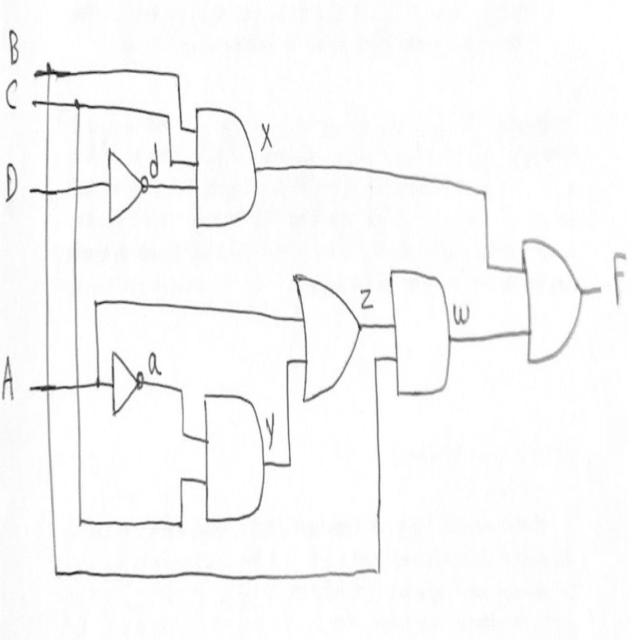 B
C
D
d
x
A
a
y
z
w
F